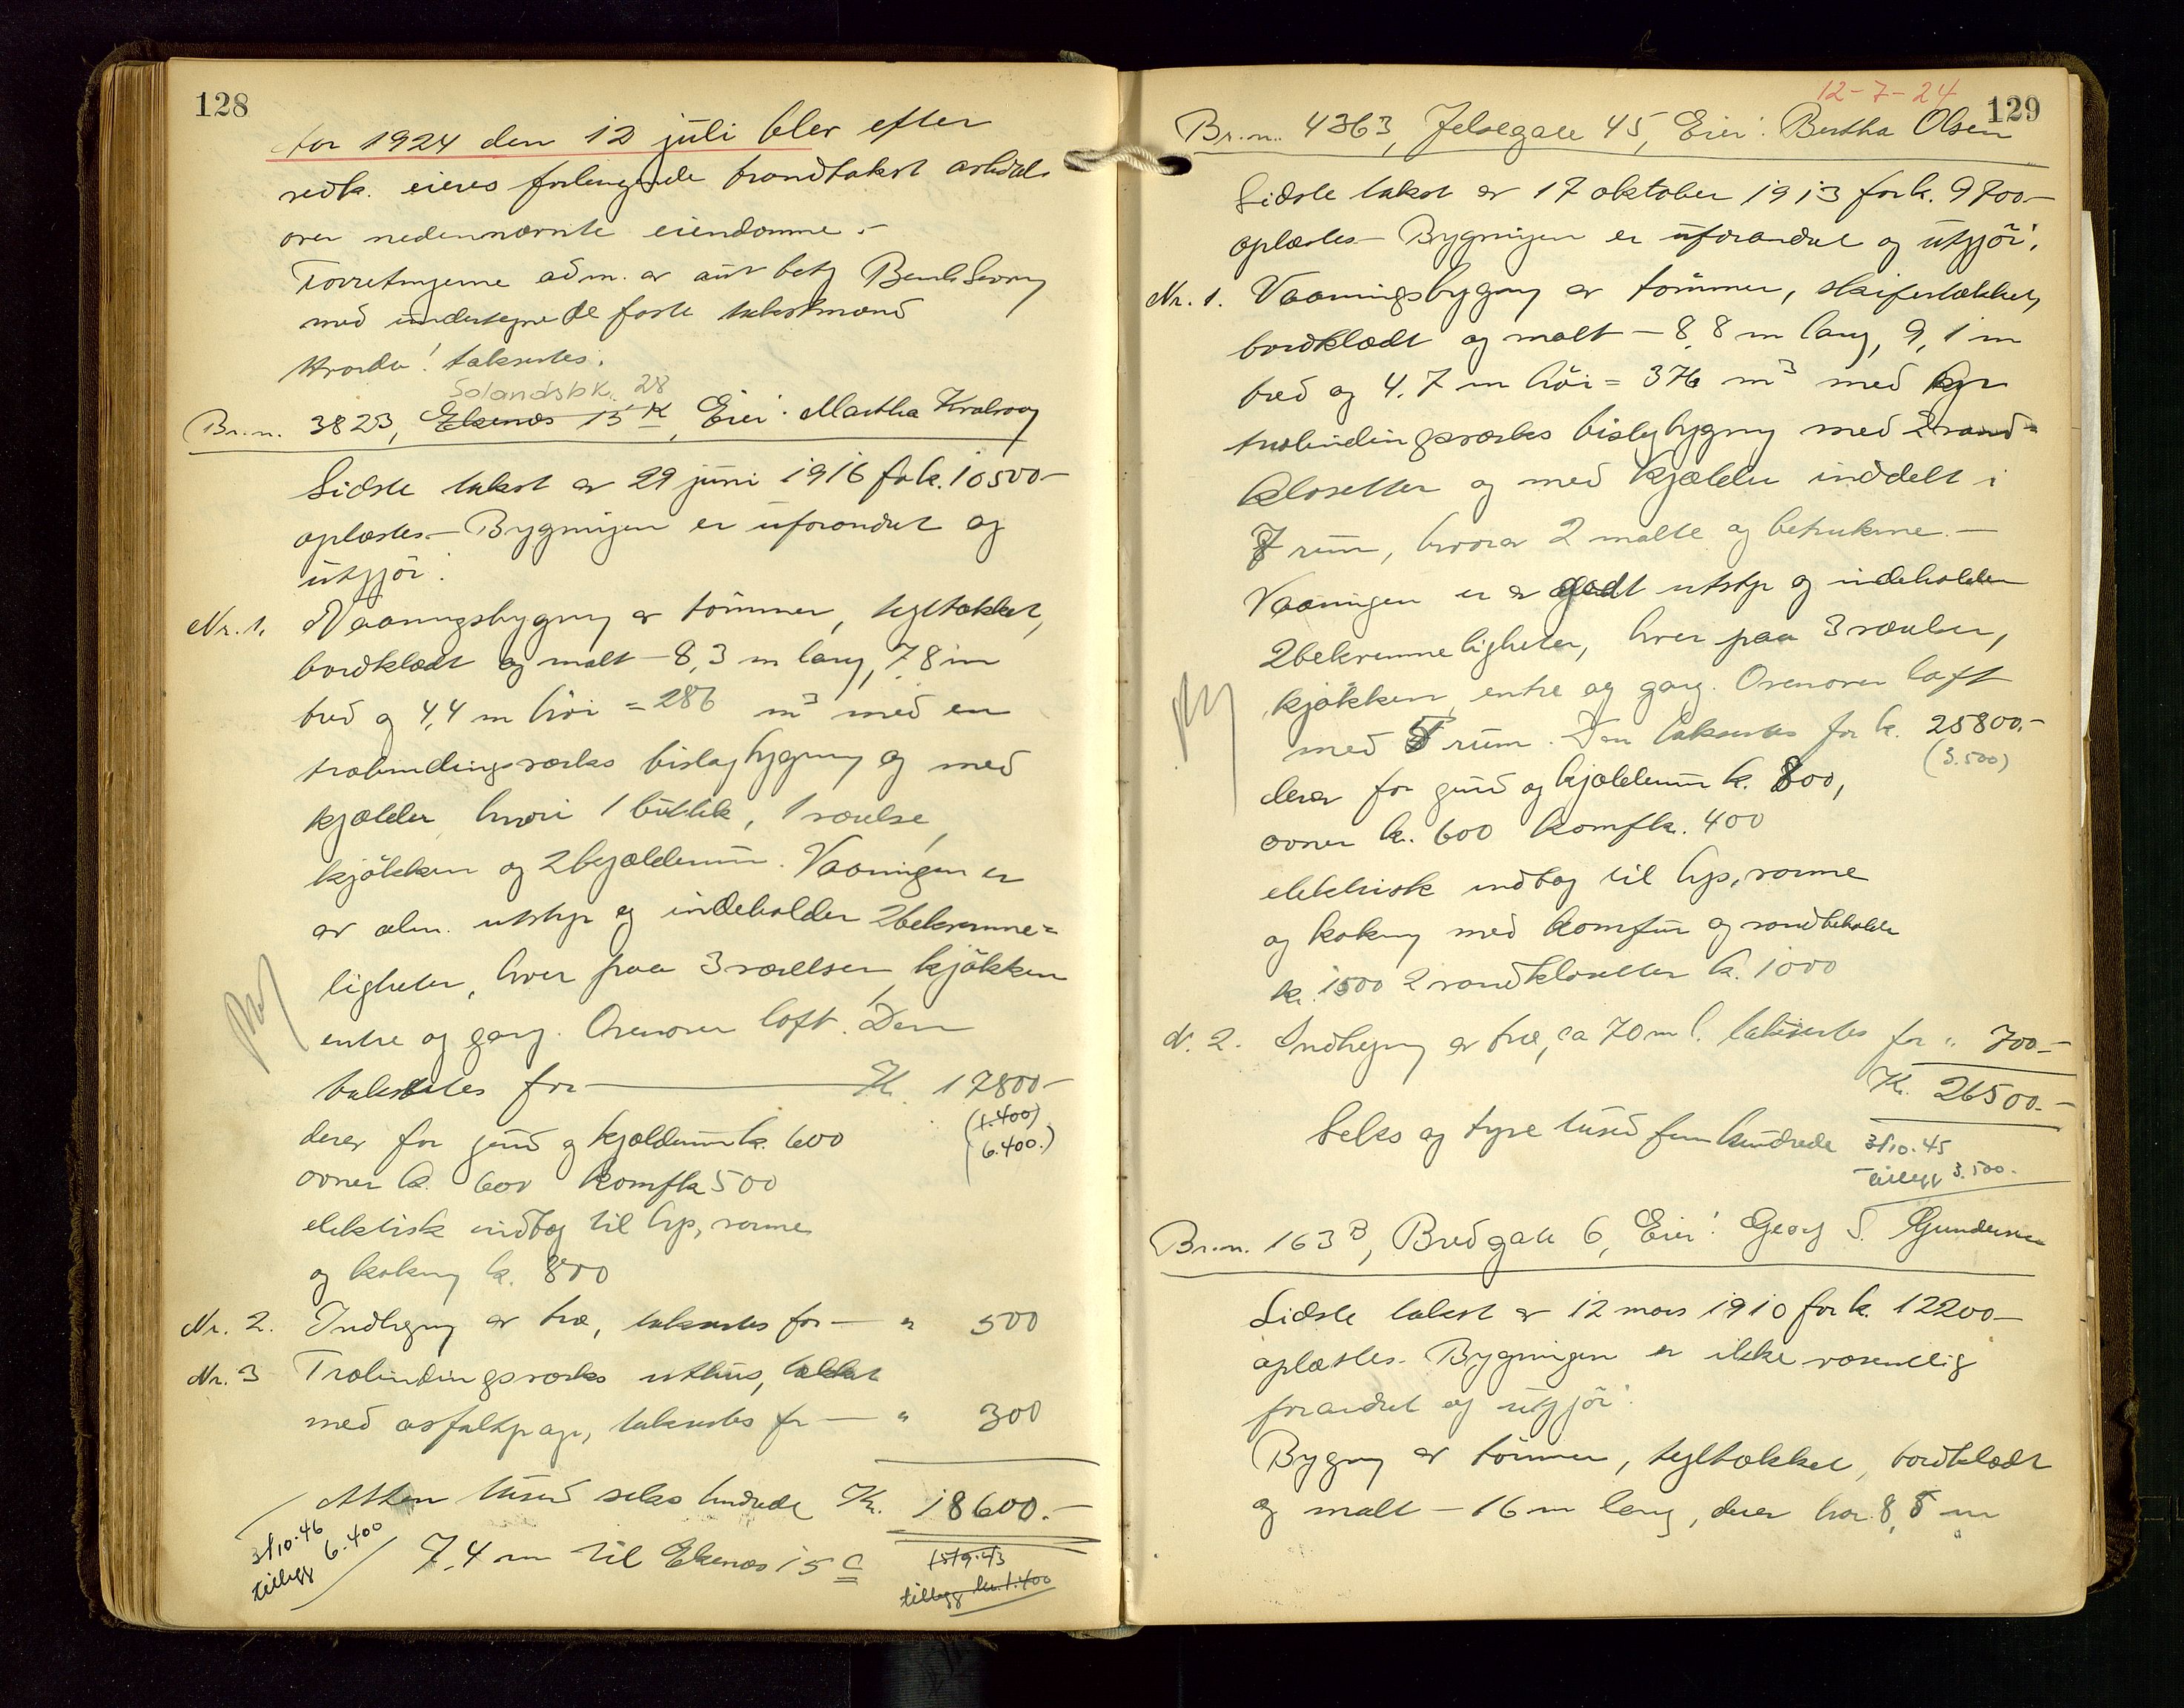 128
Aar 1924 den 12 juli blev efter
vedk. eieres forlangende brandtakst avholdt
over nedennævnte eiendomme.-
Forretningene adm. av
med undertegnede faste takstmænd
Hvorda! takseertes:
Solandsbk. 28
Br.n. 3823, Ekenæs 15 K, Eier: Martha Kvalvaag
Sidste takst av 29 juni 1916 for k. 10500-
oplæstes- Bygningen er uforandret og
utgjör:
Nr. 1. Vaaningsbygning av tömmer, tegltækket,
bordklædt og malt - 8,3 m lang, 7,8 m
bred og 4,4 m höi = 286 m³ med en
træbindingsværks bislagbygning og med
kjælder hvori 1 butik, 1 værelse,
kjökken og 2 kjælderrum. Vaaningen er
av alm. utstyr og indeholder 2 bekvemme=
ligheter, hver paa 3 værelser, kjökken
entre og gang. Ovenover loft. Den
takseertes for — Kr. 17800-
(1.400)
derav for grund og kjælderrum k. 600
(6.400.)
ovner k. 600 komfk 500
elektrisk indlæg til lys, varme
og kokning k. 800
Nr. 2. Indhegning av træ, taksertes for — " 500
Nr. 3 Træbindingsværks uthus, tækket
med asfaltpap, taksertes for — " 300
Atten tusend seks hundrede Kr. 18600.-
31/10.46
tillegg 6.400
7,4 m til Ekenæs 15 C
15/9.43
tillegg kr. 1.400
12-7-24
129
Br.n. 4363, Jelsegate 45, Eier: Bertha Olsen
Sidste takst av 17 oktober 1913 for k. 9700-
oplæstes- Bygningen er uforandret og utgjör:
Nr. 1. Vaaningsbygning av tömmer, skifertækket,
bordklædt og malt - 8,8 m lang, 9,1 m
bred og 4,7 m höi = 376 m³ med
træbindingsværks bislagbygning med 2 vand=
klosetter og med kjælder inddelt i
7 rum, hvorav 2 malte og betrukne. -
Vaaningen er av godt utstyr og indeholder
2 bekvemmeligheter, hver paa 3 værelser,
kjökken, entre og gang. Ovenover loft
med 5 rum. Den taksertes for k. 25800.-
(3.500)
derav for grund og kjælderrum k. 800,
ovner k. 600 komfk. 400
elektrisk indlæg til lys, varme
og kokning med komfur og vandbeholder
k. 1500 2 vandklosetter k. 1000
N. 2. Indhegning av træ, ca 70 m l. taksertes for " 700.-
Kr. 26500.-
Seks og tyve tusend fem hundrede
31/10.45
tillegg 3.500.-
Br.n. 163 B, Bredgate 6, Eier: Georg S. Gundersen
Sidste takst av 12 mars 1910 for k. 12200-
oplæstes- Bygningen er ikke væsentlig
forandret og utgjör:
Bygning av tömmer, tegltækket, bordklædt
og malt - 16 m lang, derav har 8,8 m